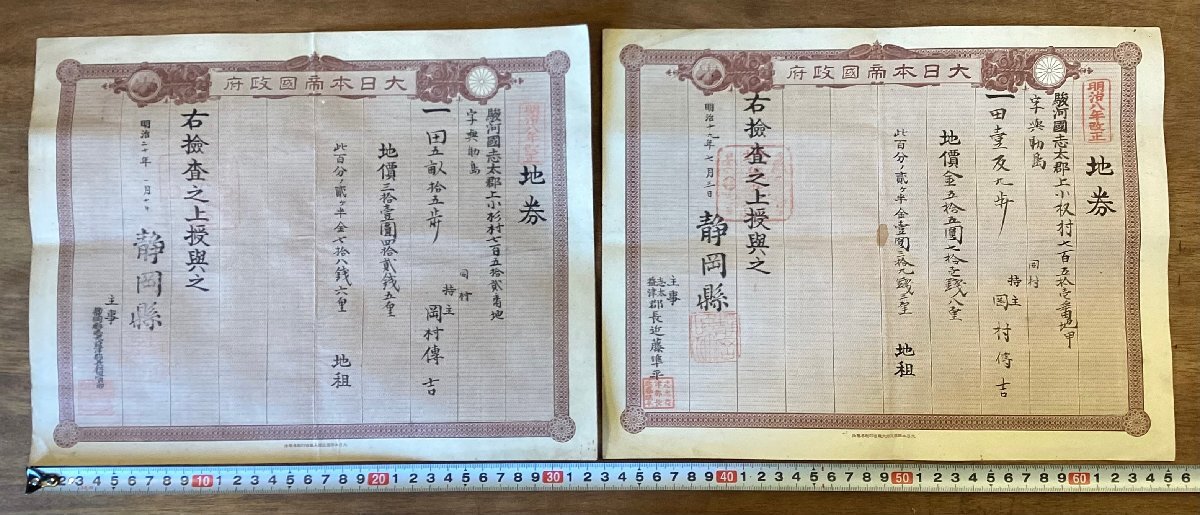 大日本帝國政府
明治八年改正
地券
駿河國志太郡上小杉村七百五拾貳番地
字與助島
同村
一田五畝拾五歩
持主
岡村傳吉
地價三拾壹圓四拾貳錢五厘
地租
此百分ノ貳ケ半金七拾八錢六厘
右撿査之上授與之
明治二十年一月十日
靜岡縣
主事
大日本帝國政府
明治八年改正
地券
駿河國志太郡上小杉村七百五拾壱番地甲
字與助島
同村
一田壹反九歩
持主
岡村傳吉
地價金五拾五圓七拾壱錢八厘
地租
此百分ノ貳ケ半金壹圓三拾九錢三厘
右撿査之上授與之
明治十九年七月三日
靜岡縣
主事
志太
益津
郡長近藤準平
10 20 30 40 50 60